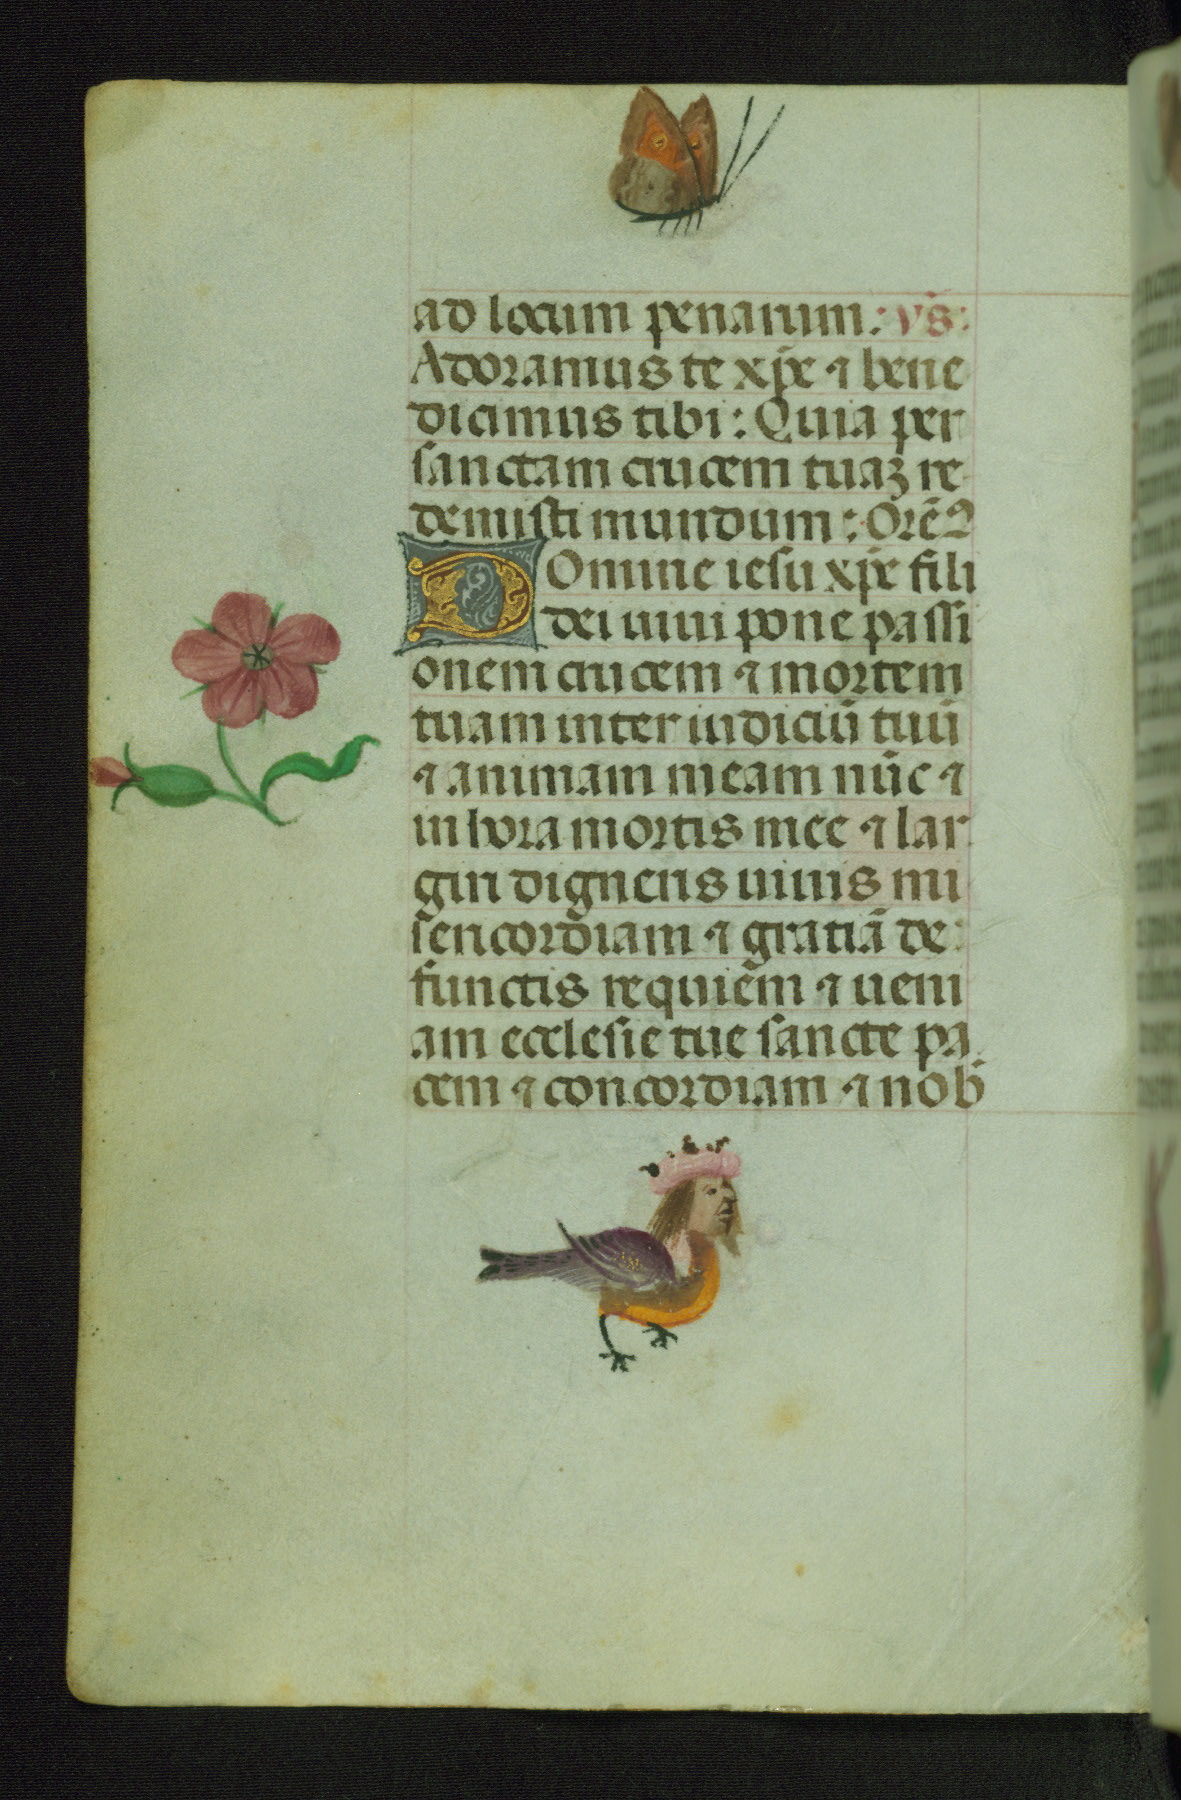 ad locum penarum: vs̄:
Adoramus te xp̄e ⁊ bene
dicimus tibi: Quia per
sanctam crucem tuaꝫ re
demisti mundum: Orem̄9
Domine iesu xp̄e fili
dei uiui pone passi
onem crucem ⁊ mortem
tuam inter iudiciū tuū
⁊ animam meam nūc ⁊
in hora mortis mee ⁊ lar
giri digneris uiuis mi
sericordiam ⁊ gratiā de
functis requiem ⁊ ueni
am ecclesie tue sancte pa
cem ⁊ concordiam ⁊ nob̄